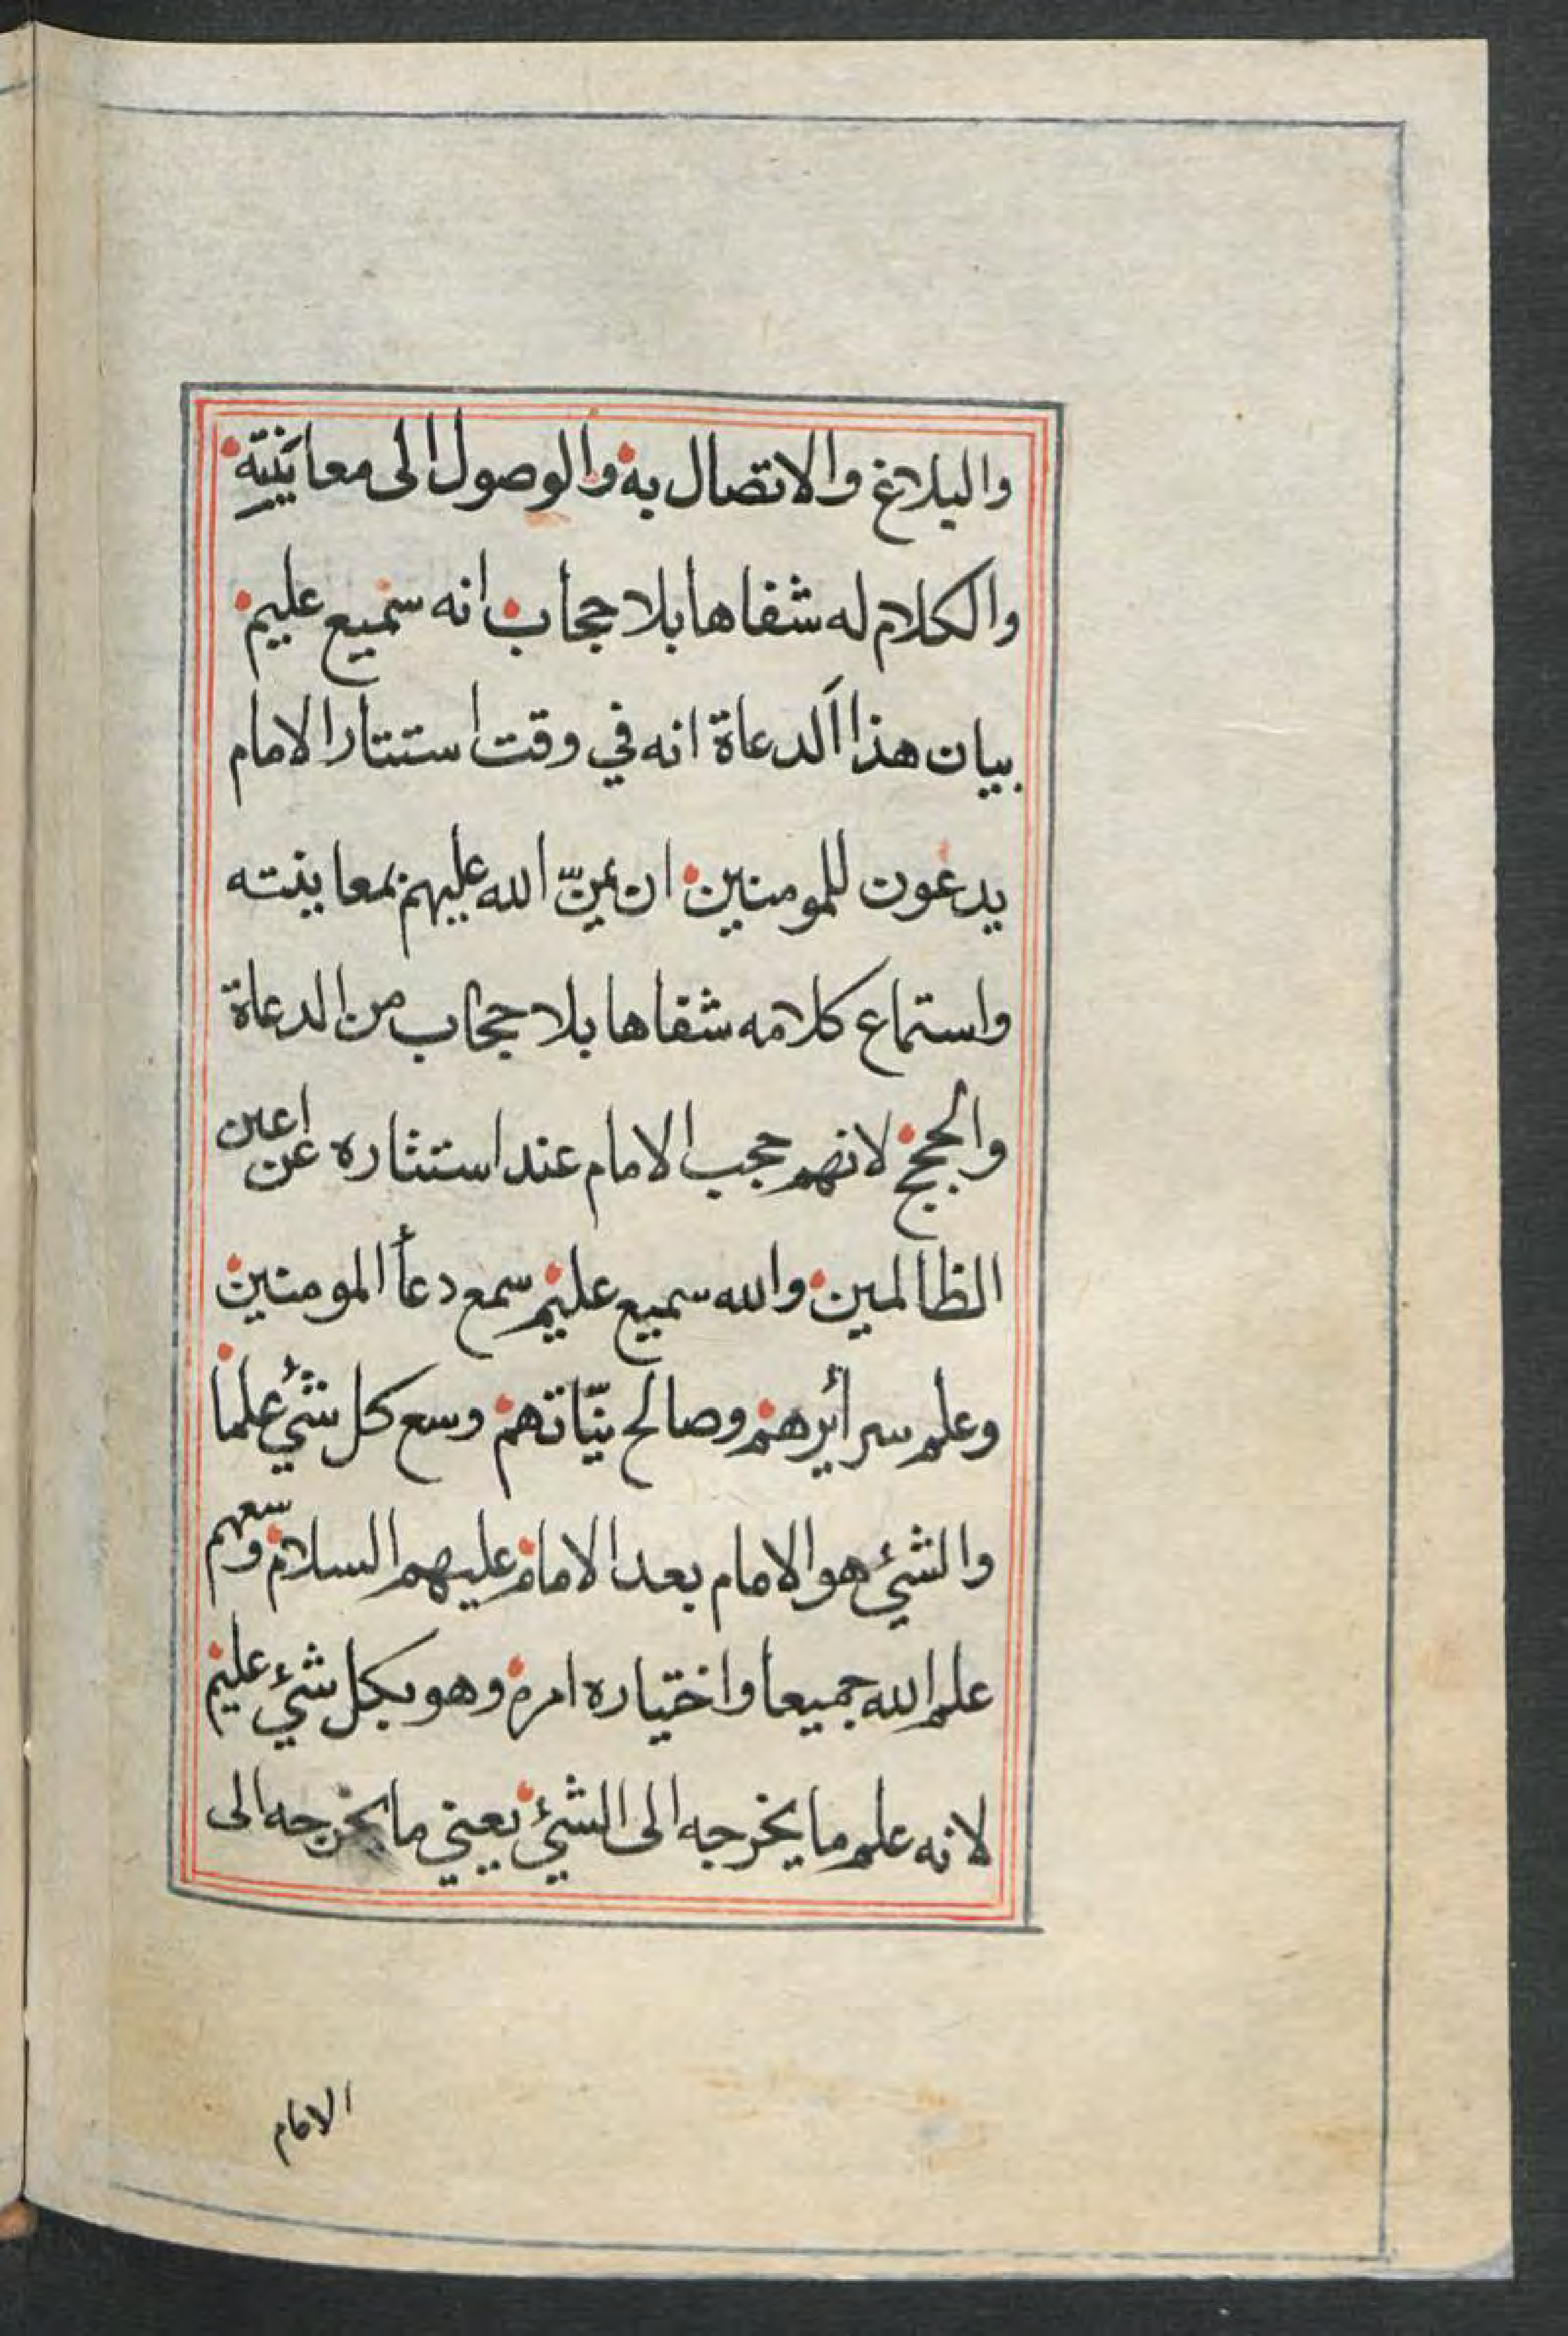 والبلاغ والاتصال به والوصول الى معاينته
والكلام له شفاها بلا حجاب انه سميع عليم
بيان هذا الدعاة انه في وقت استتار الامام
يدعون للمومنين ان يمنّ الله عليهم بمعاينته
واستماع كلامه شفاها بلا حجاب من الدعاة
والحجج لانهم حجب الامام عند استتاره عن اعين
الظالمين والله سميع عليم سمع دعأ المومنين
وعلم سرأيرهم وصالح نيّاتهم وسع كل شئ علما
والشئ هو الامام بعد الامام عليهم السلام وسعهم
علم الله جميعا واختياره امره وهو بكل شئ عليم
لانه علم ما يخرجه الى الشئ يعني ما يخرجه الى
الامام